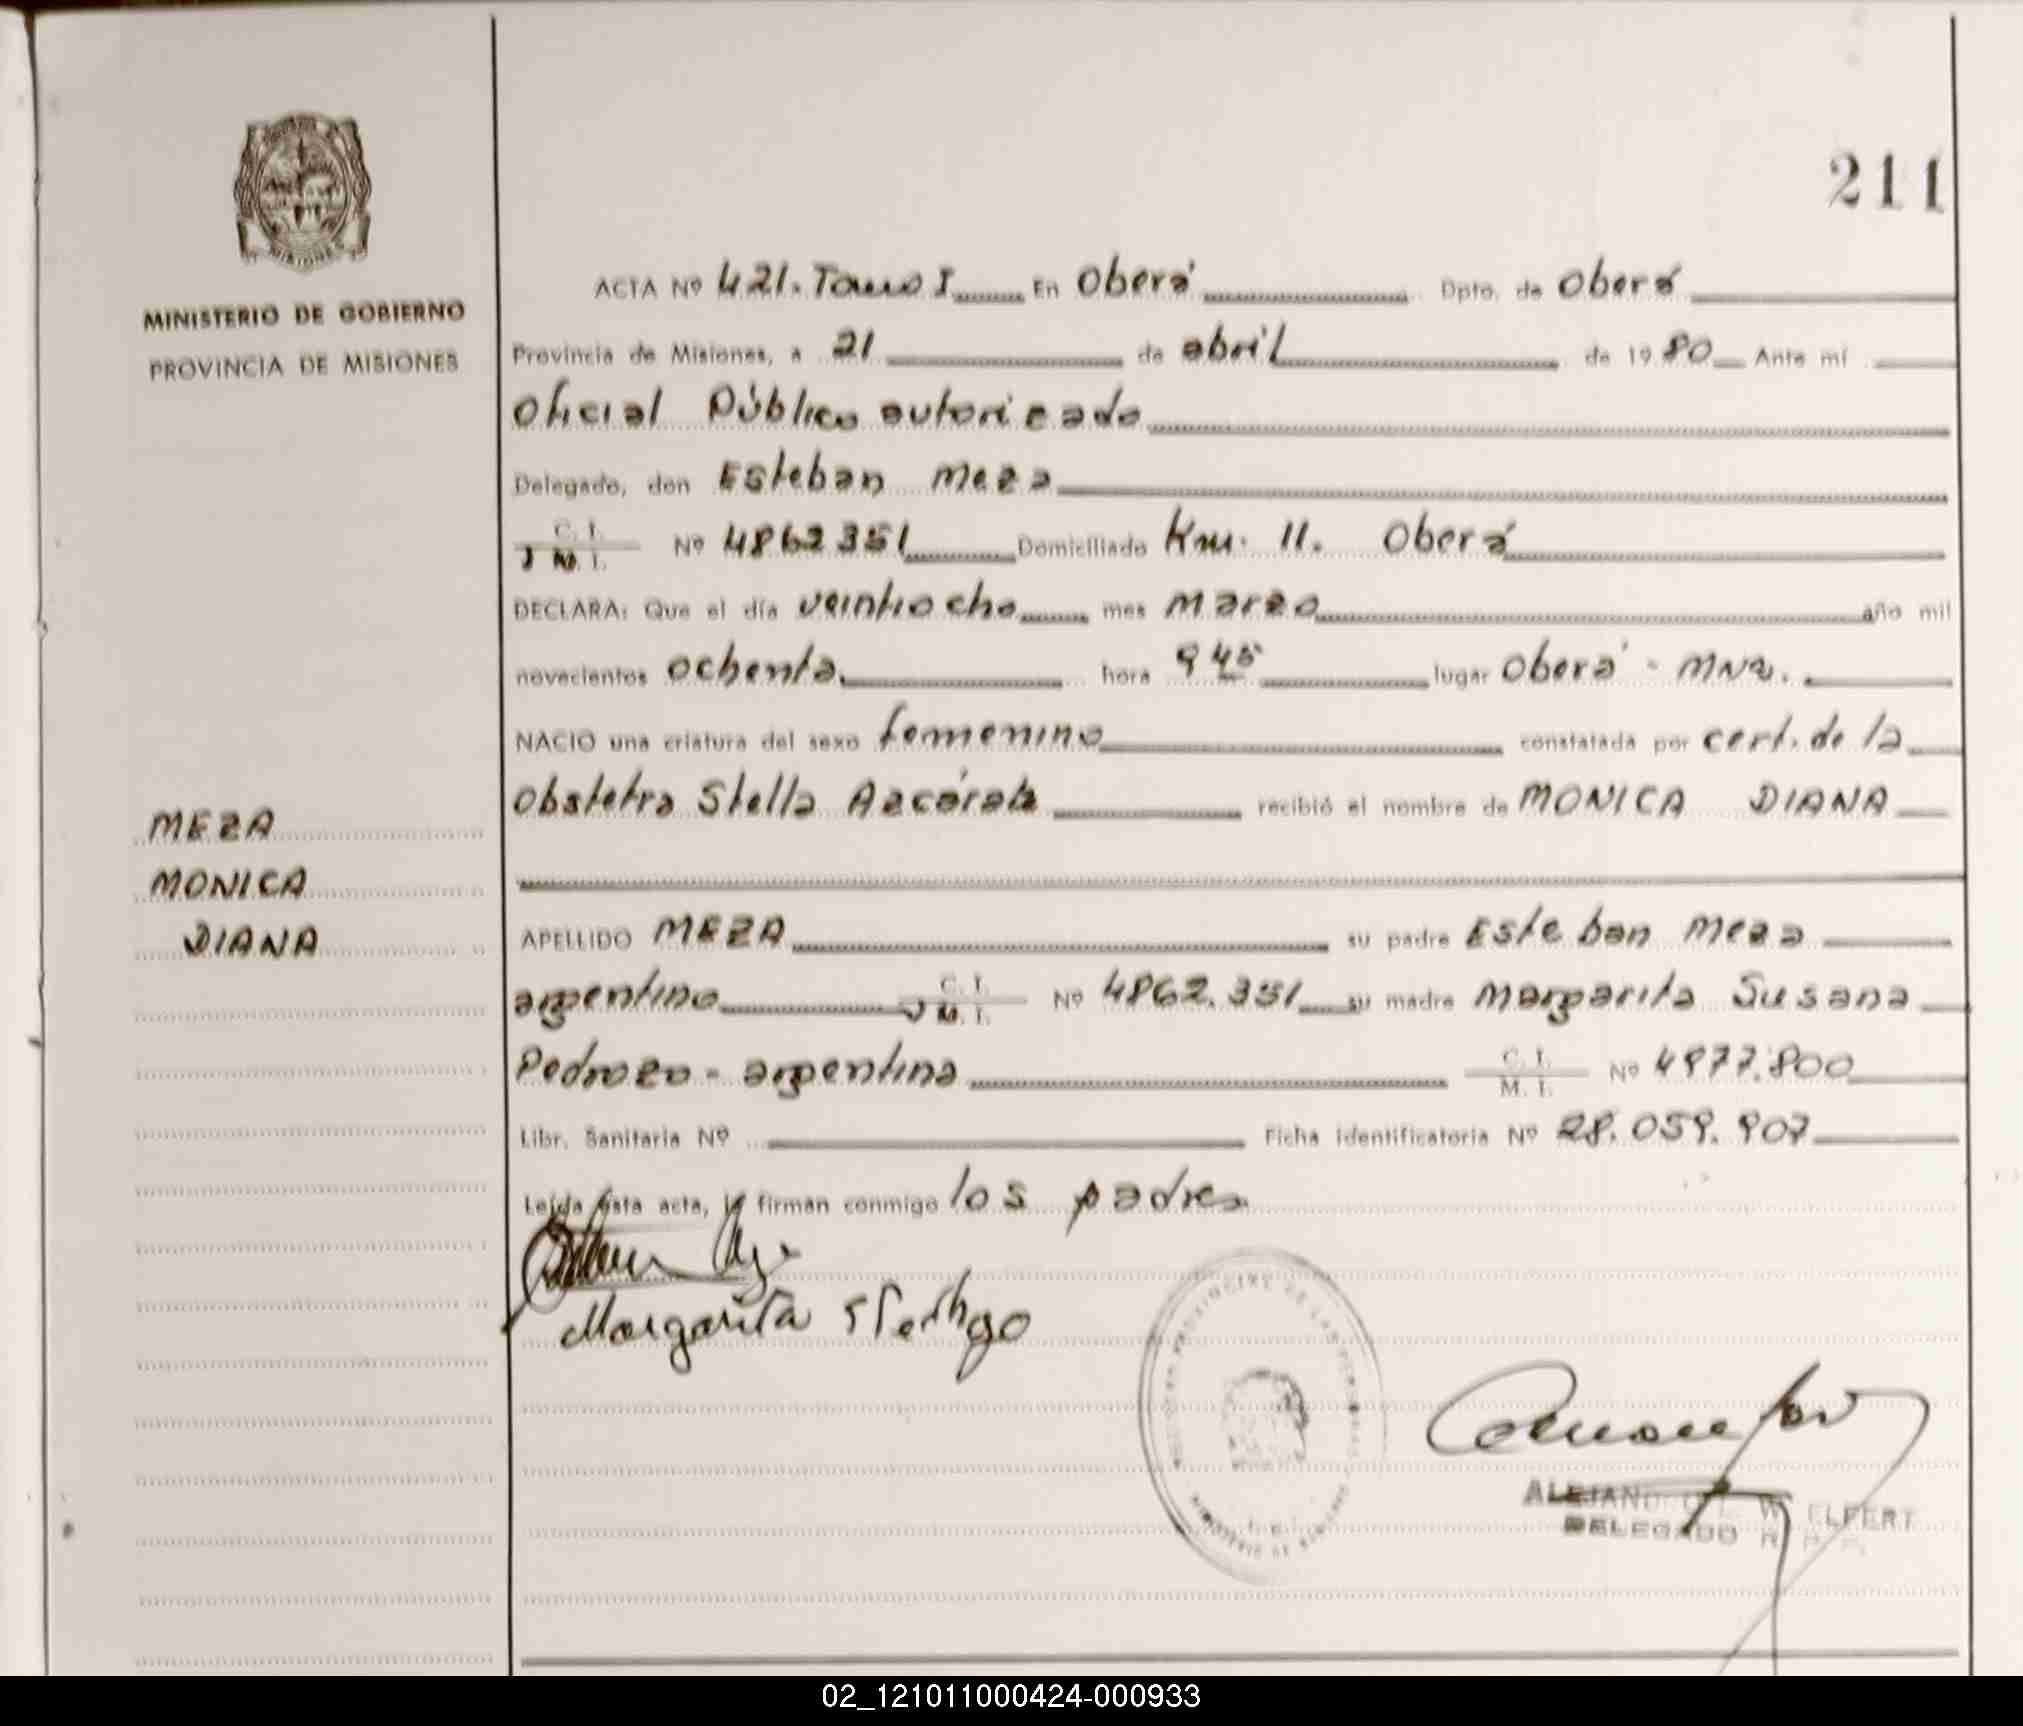 211
MINISTERIO DE GOBIERNO
PROVINCIA DE MISIONES
MEZA
MONICA
DIANA
ACTA Nº 421. Tomo I En Oberá Dpto. de Oberá
Provincia de Misiones, a 21 de abril de 1980 Ante mí
Oficial Público autorizado
Delegado, don Esteban Meza
C. I.
M. I. Nº 4862351 Domiciliado Km. 11. Oberá
DECLARA: Que el día veintiocho mes marzo año mil
novecientos ochenta hora 945 lugar Oberá - Mnes.
NACIO una criatura del sexo femenino constatada por cert. de la
Obstetra Stella Azcárate recibió el nombre de MONICA DIANA
APELLIDO MEZA su padre Esteban Meza
argentino C. I.
M. I. Nº 4862.351 su madre Margarita Susana
Pedrozo - argentina C. I.
M. I. Nº 4977.800
Libr. Sanitaria Nº Ficha identificatoria Nº 28.059.907
Leída esta acta, la firman conmigo los padres
Margarita S
MINISTERIO DE GOBIERNO
DELEGADO R. P. P.
02_121011000424-000933